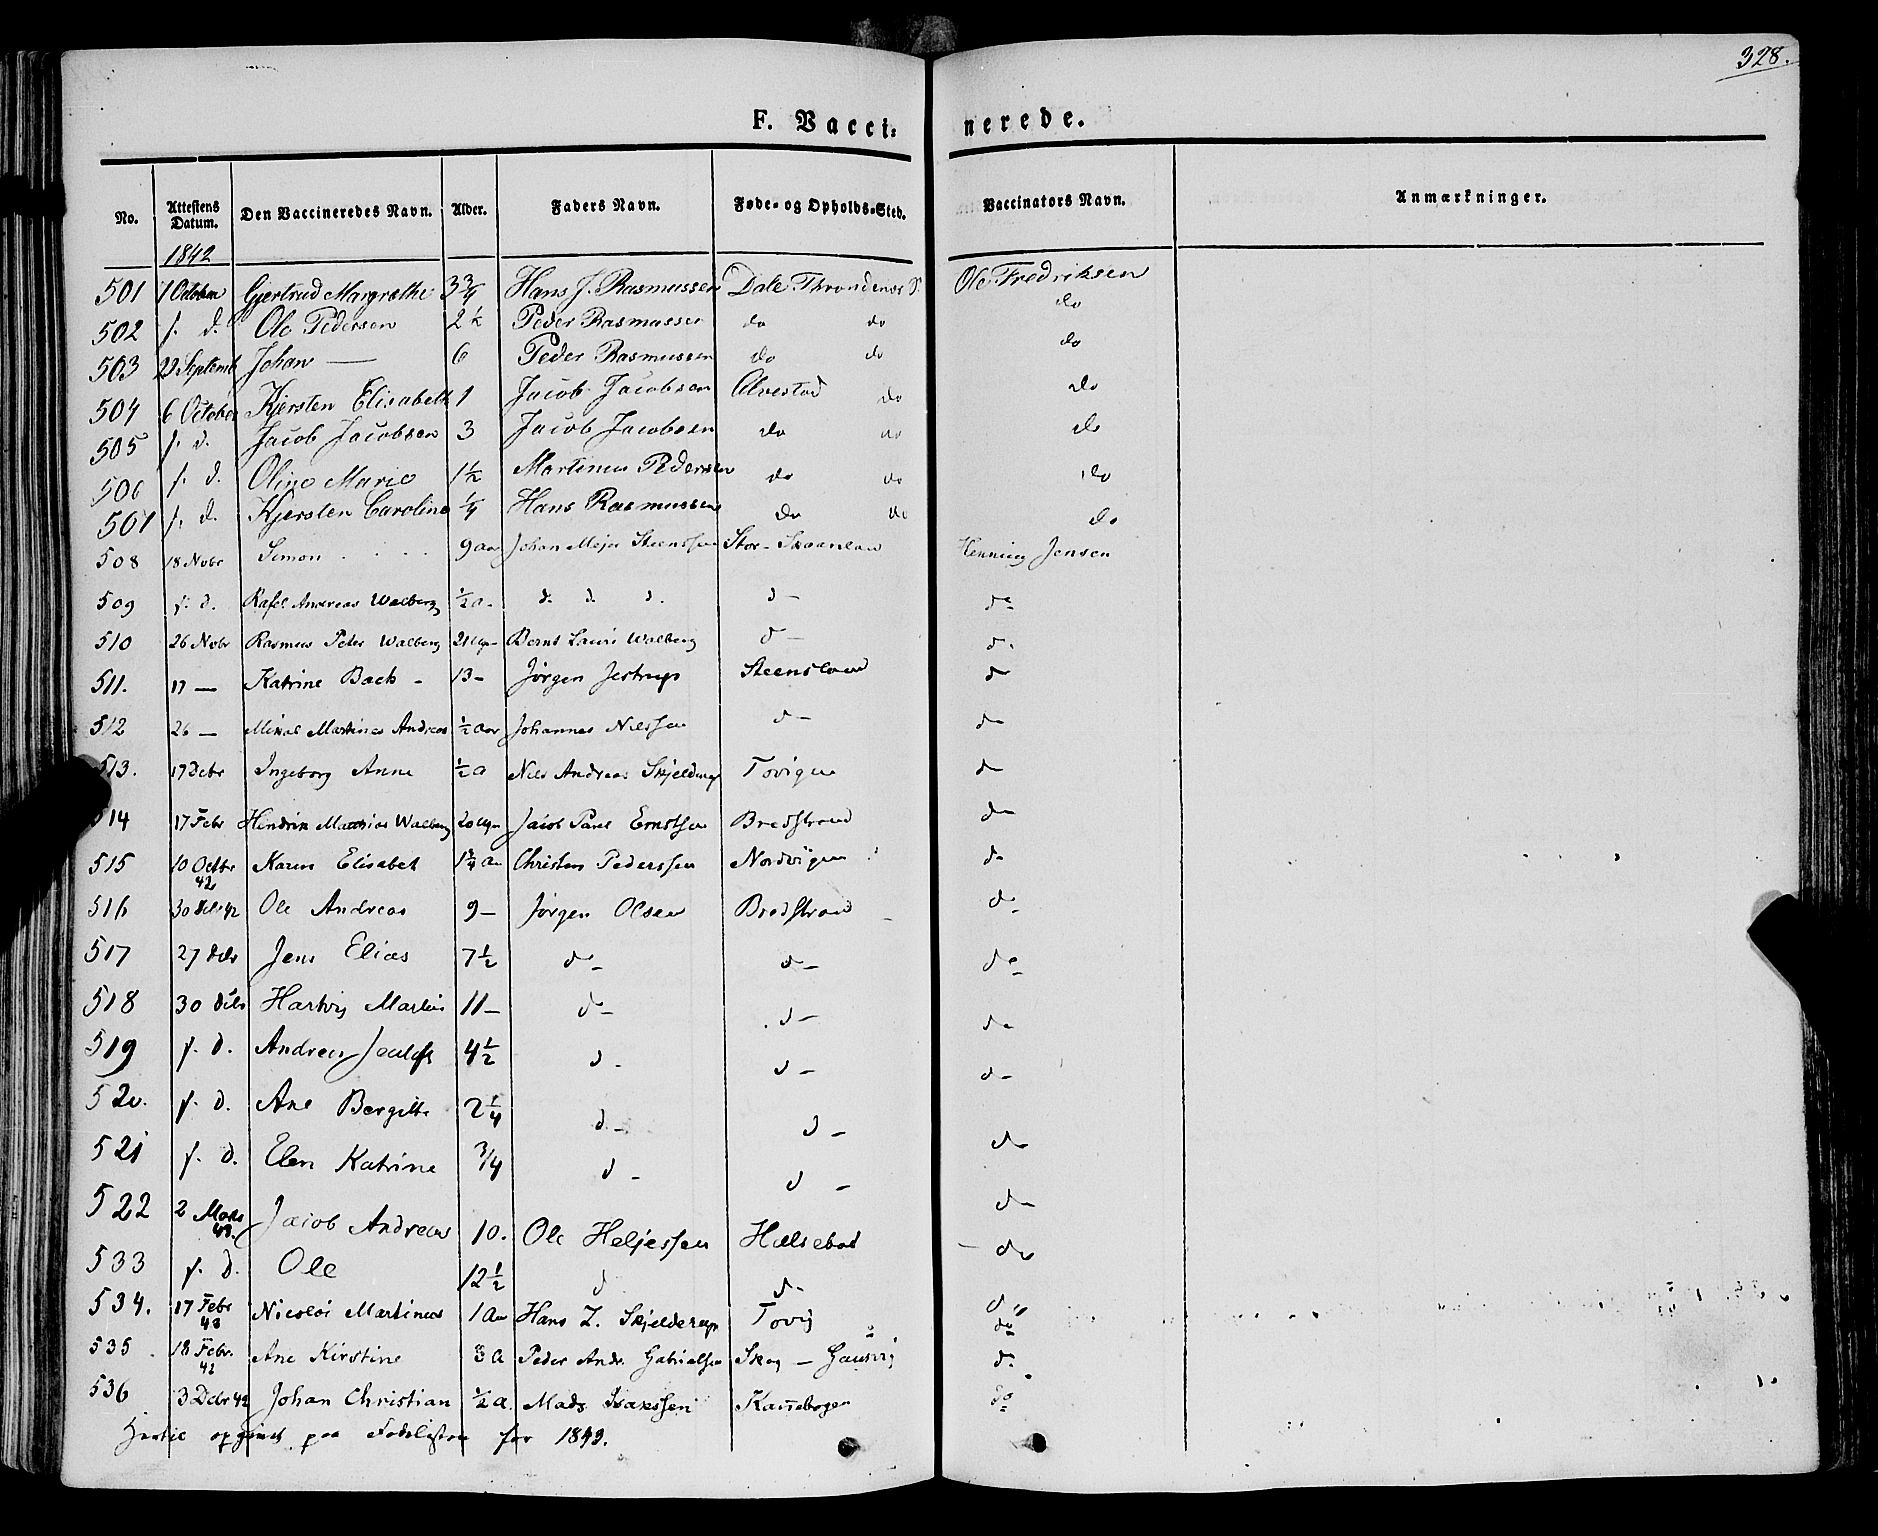 328.
F. Vacci= nerede.
No. Attestens Datum. Den Vaccineredes Navn. Alder. Faders Navn. Føde- og Opholds-Sted. Vaccinators Navn. Anmærkninger.
1842
501 1 October Gjertrud Margrethe 3 3/4 Hans J. Rasmussen Dale Throndenæs S. Ole Fredriksen
502 s. d. Ole Pedersen 2 1/2 Peder Rasmussen do do do
503 22 Septemb Johan — 6 Peder Rasmussen do do do
504 6 October Kjersten Elisabeth 1 Jacob Jacobsen Alvestad do do
505 s. d. Jacob Jacobsen 3 Jacob Jacobsen do do do
506 s. d. Oline Marie 1 1/2 Martinus Pedersen do do do
507 s. d. Kjersten Caroline 1/4 Hans Rasmussen do do do
508 18 Novbr Simon 9 aar Johan Mejer Steenssen Stor-Skaanland Henning Jensen
509 s. d. Rafel Andreas Walberg 1/2 a. d. d. d. d - do
510 26 Novbr Rasmus Peter Walberg 21 Ugr Bernt Lauri Walberg d - d.
511. 17 — Katrine Bach - 13 - Jørgen Jestrup Steensland do
512 26 — Mikal Martines Andreas 1/2 aar Johannes Nilssen d - do
513. 17 Debr Ingeborg Anne 1/2 a Nils Andreas Skjelderup Tovigen do
514 17 Febr Hendrik Mathias Walberg 20 Ugr Jacob Paul Ernstsen Bredstrand do
515 10 Octbr 42 Karen Elisabet 1 3/4 aar Christen Pederssen Nordvigen do
516 30 Debr 42 Ole Andreas 9 - Jørgen Olsen Bredstrand do
517 27 debr Jens Elias 7 1/2 do - do - do
518 30 debr Hartvig Martin 11 - do - d - do
519 s. d. Andreas 4 1/2 d - d - d -
520. s. d. Ane Bergitte 2 1/4 d. - d - do
521 s. d. Elen Katrine 3/4 d - d - do
522 2 Marts 43. Jacob Andreas 10. Ole Heljessen Hilsebot do
533 s. d. Ole 12 1/2 d d - d
534. 17 Febr 43 Nicolai Martines 1 aar Hans Z. Skjelderup Tovig do
535 18 Febr. 42 Ane Kirstine 3 a Peder Andr. Gabrielsen Skog - Gausvig d.
536 3 Debr 42 Johan Christian 1/2 a. Mads Isakssen Kannebogen do
opgivet paa Fødelisten for 1843.